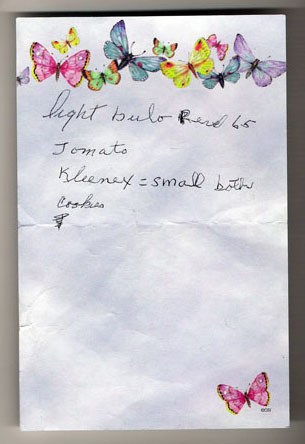 light bulb Rend 65
Tomato
Kleenex = small both
cookies